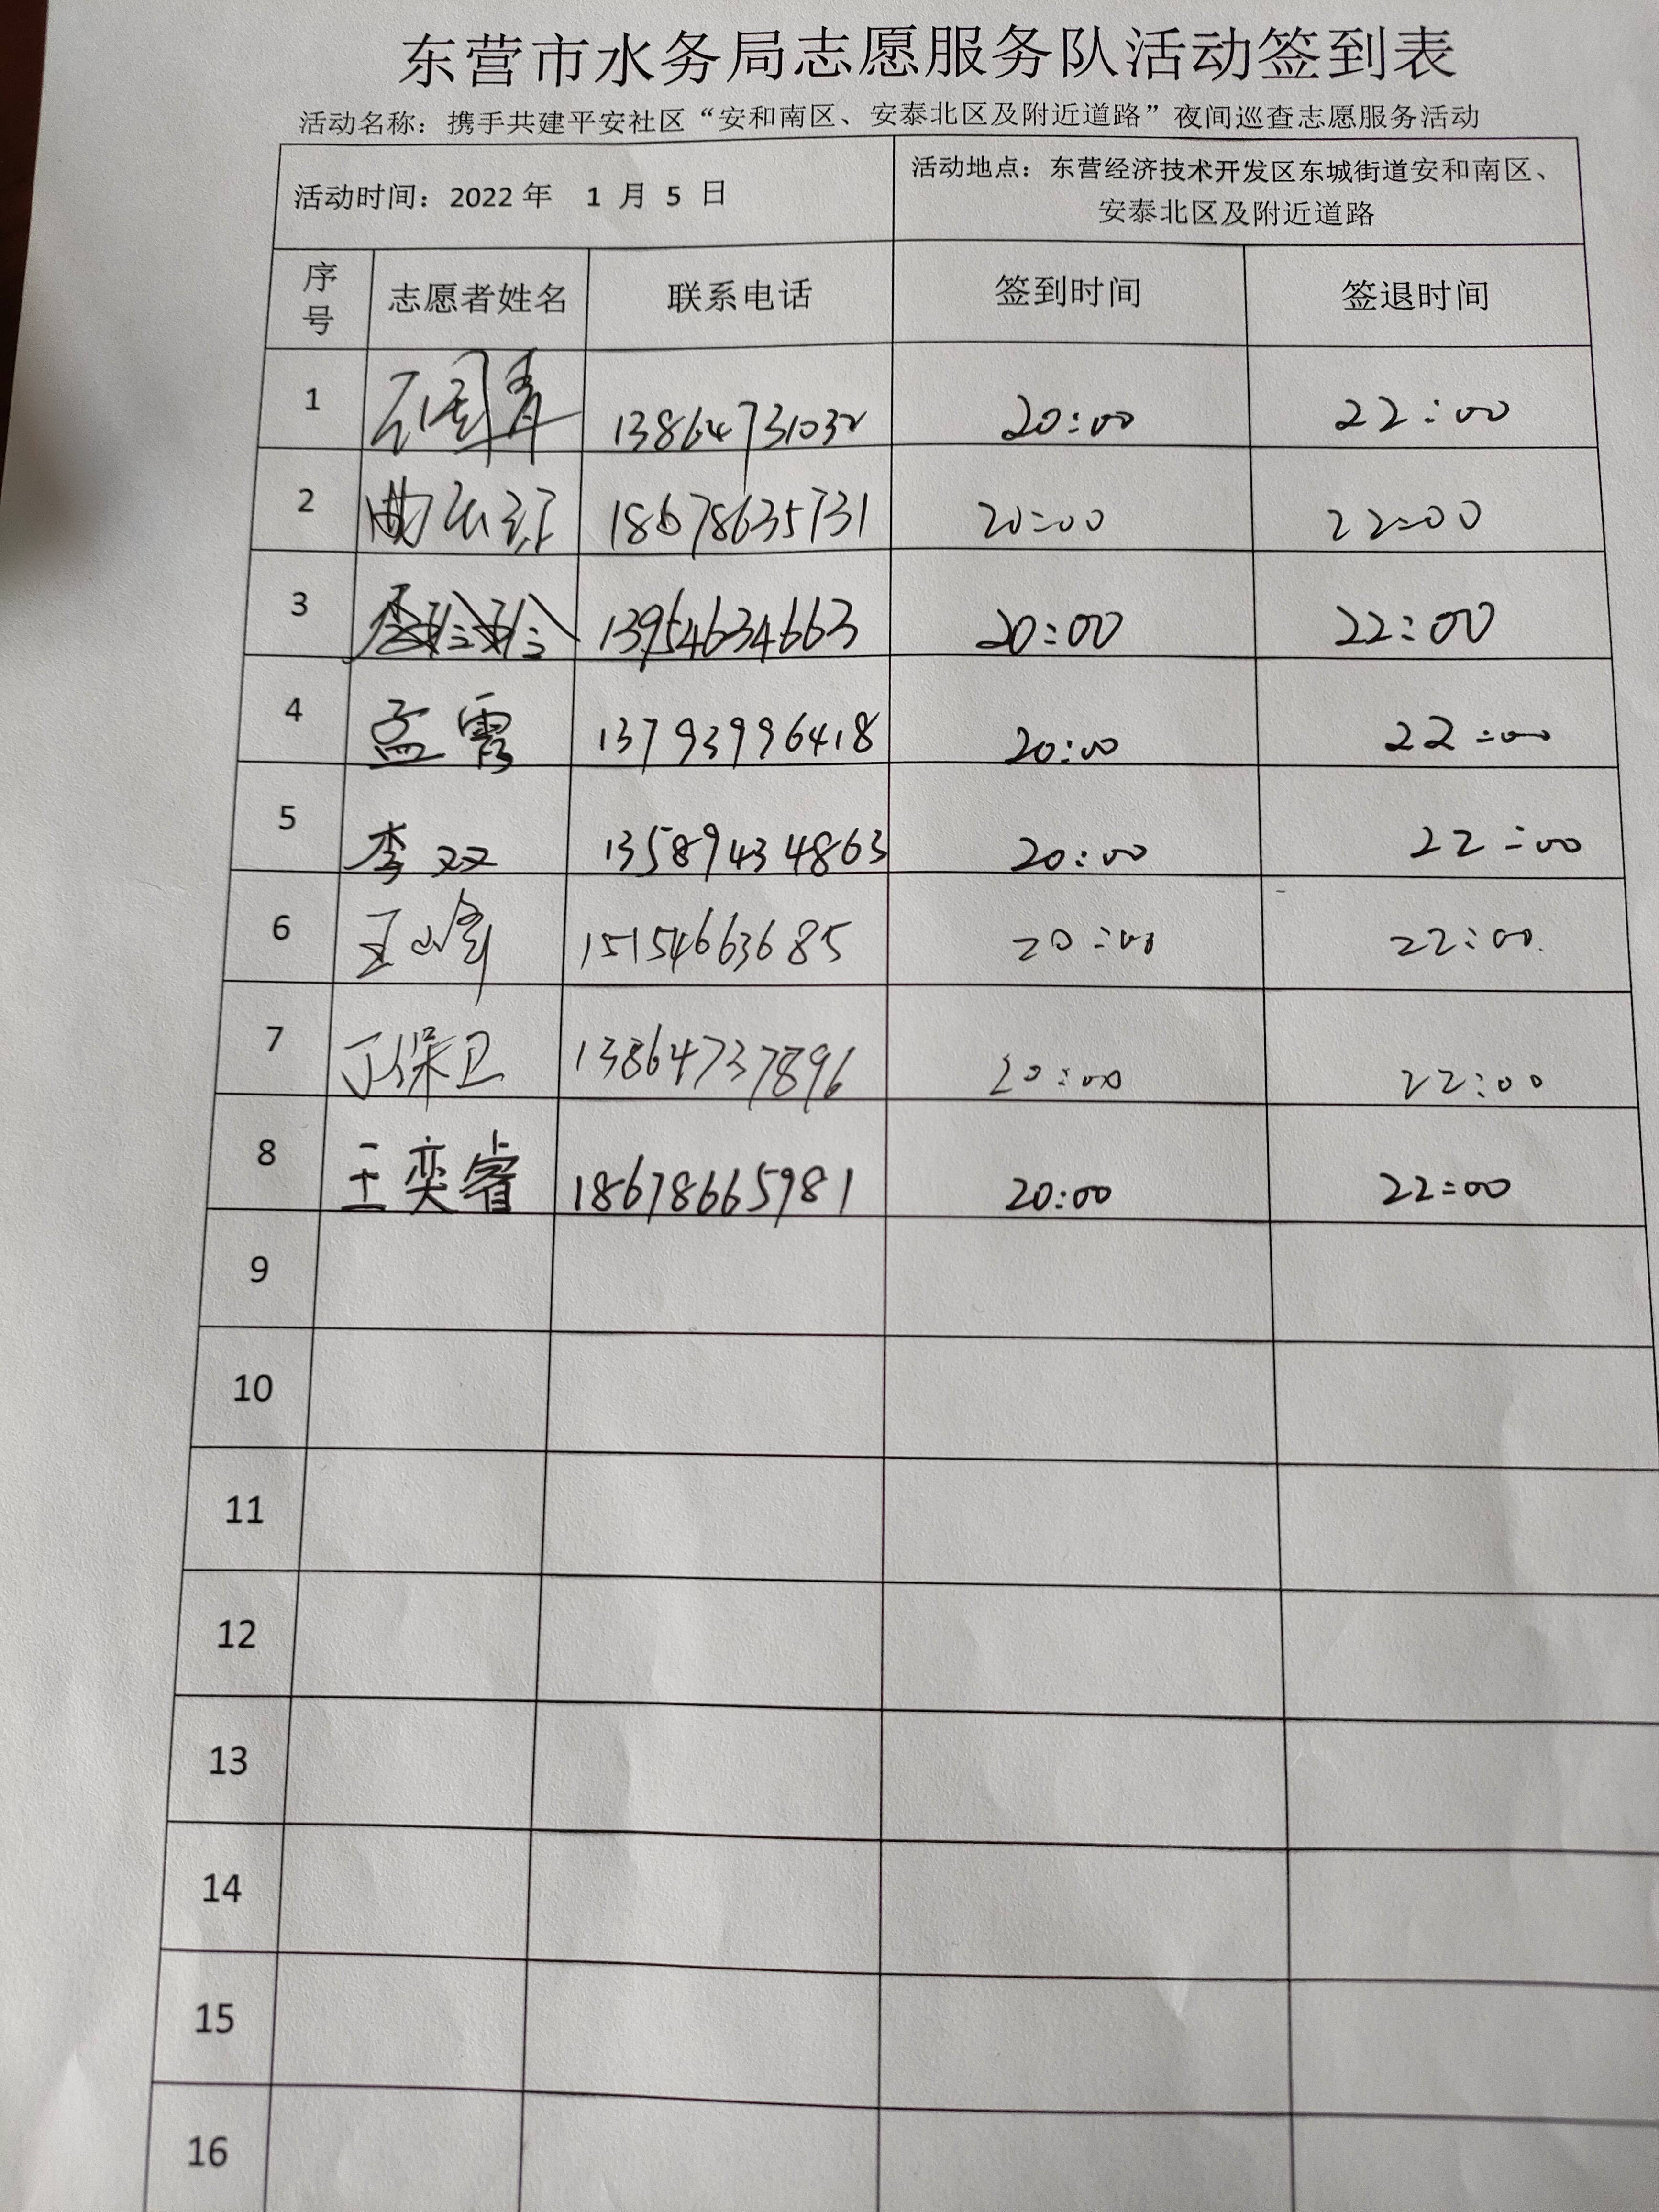 东营市水务局志愿服务队活动签到表
活动名称：携手共建平安社区“安和南区、安泰北区及附近道路”夜间巡查志愿服务活动
活动时间：2022 年 1 月 5 日
活动地点：东营经济技术开发区东城街道安和南区、
安泰北区及附近道路
序号 志愿者姓名 联系电话 签到时间 签退时间
1 13864731032 20:00 22:00
2 18678635731 20:00 22:00
3 13954634663 20:00 22:00
4 孟霄 13793996418 20:00 22:00
5 李双 13589434863 20:00 22:00
6 王峰 15154663685 20:00 22:00
7 丁保卫 13864737896 20:00 22:00
8 王奕睿 18678665981 20:00 22:00
9
10
11
12
13
14
15
16